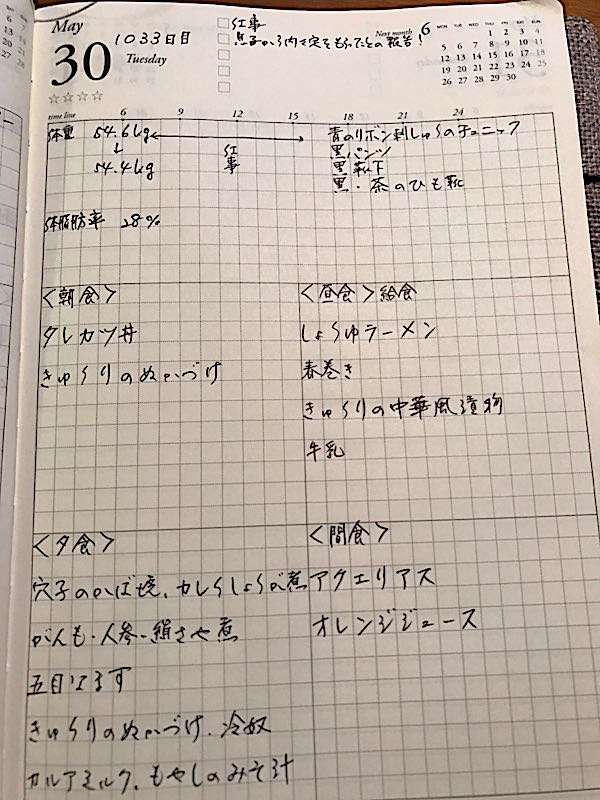 May
30
Tuesday
1033日目
仕事
息子から内々定をもらったとの報告!
Next month 6
MON TUE WED THU FRI SAT SUN
1 2 3 4
5 6 7 8 9 10 11
12 13 14 15 16 17 18
19 20 21 22 23 24 25
26 27 28 29 30
☆☆☆☆
time line 6 9 12 15 18 21 24
体重 54.6kg
↓
54.4kg
仕事
体脂肪率 28%
青のリボン刺しゅうのチュニック
黒パンツ
黒靴下
黒・茶のひも靴
<朝食>
タレカツ丼
きゅうりのぬかづけ
<昼食>給食
しょうゆラーメン
春巻き
きゅうりの中華風漬物
牛乳
<夕食>
穴子のかば焼、カレイしょうが煮
がんも・人参・絹さや煮
五目いなす
きゅうりのぬかづけ、冷奴
カルアミルク、もやしのみそ汁
<間食>
アクエリアス
オレンジジュース